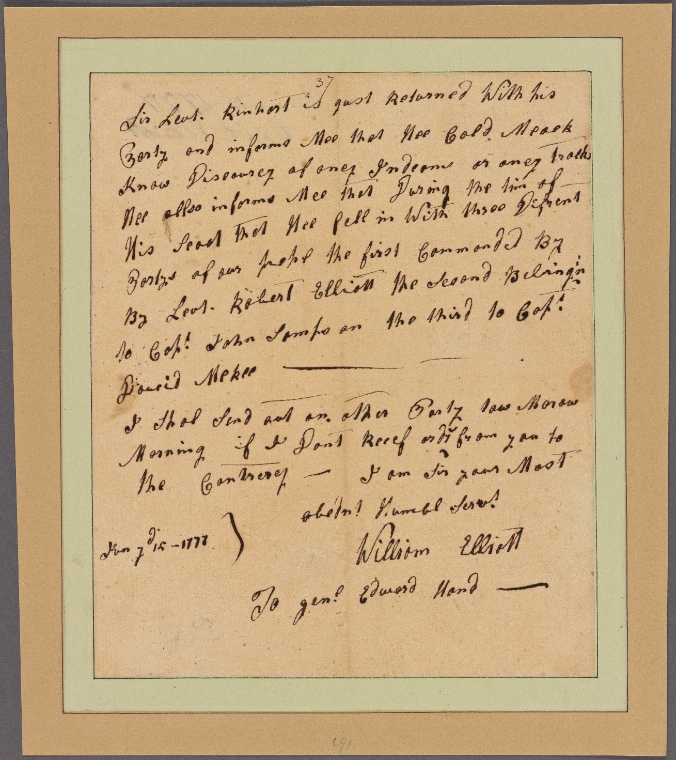 37
Sir Leut. Rinhart is Just Returned With his
Party and informs Mee that Hee Cold Meack
Know Discourey of aney Indeans or aney Tracks
Hee allso informs Mee that During the tim of
His Scout that Hee fell in With three Difrent
Partys of our pepel the first Commanded By
By Leut. Robert Elliott the Second Belingin
to Capt. John Samps on the third to Capt.
David Mckee
I Shal Send out an other Party tow Morow
Morning if I Dont Recef ordr from you to
the Contrerey — I am Sir your Most
obednt Humbl Servt
15 - 1777
William Elliott
To genl Edward Hand —
291